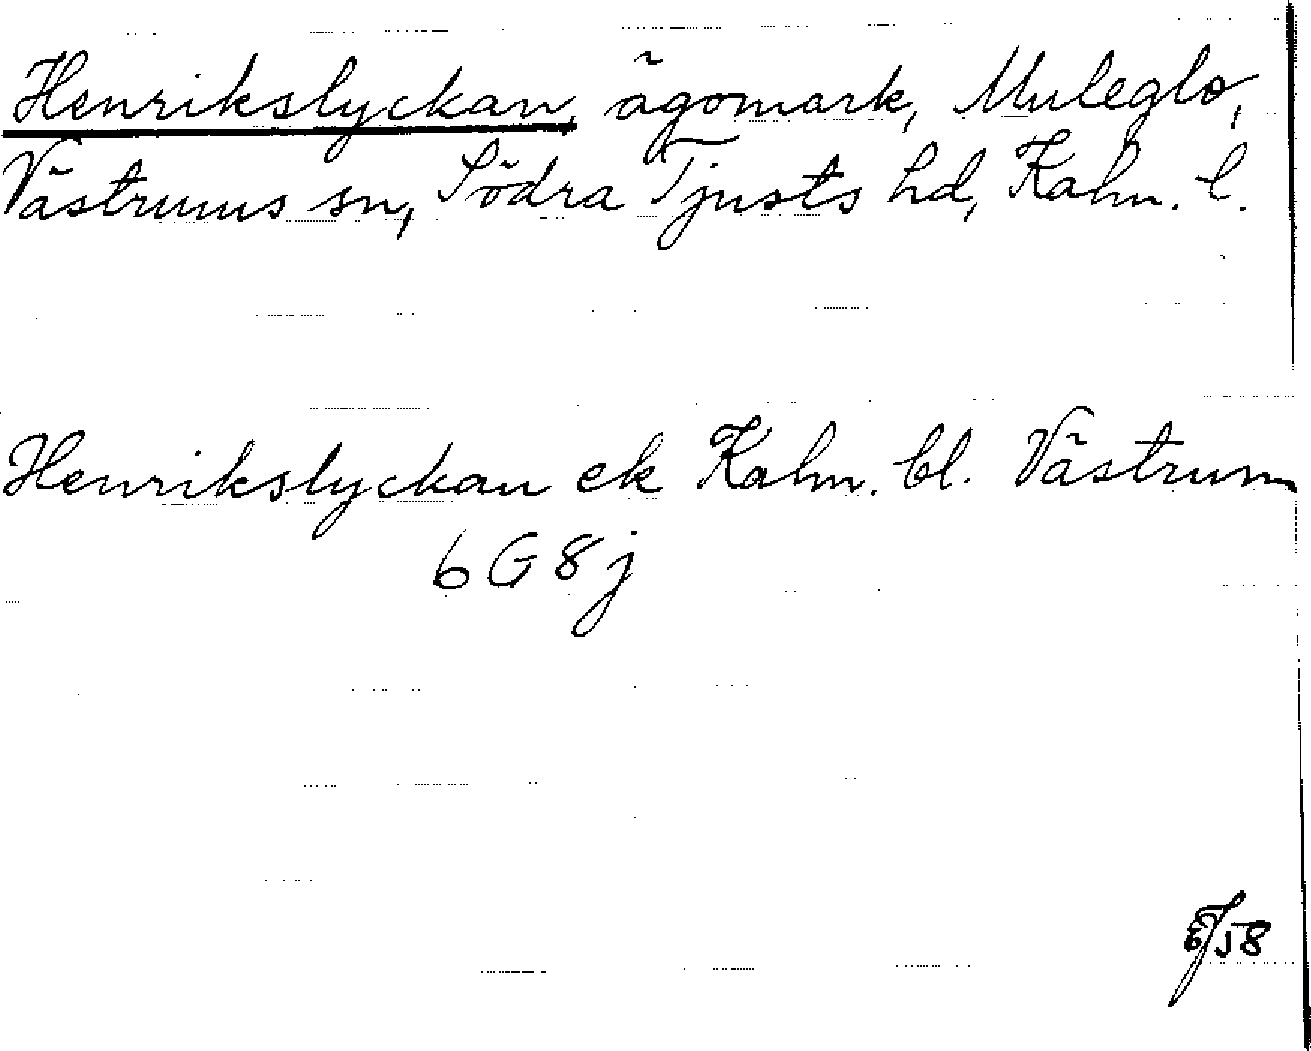 Henrikslyckan, ägomark, Muleglo,
Västrums sn, Södra Tjusts hd, Kalm. l.
Henrikslyckan ek Kalm. bl. Västrum
6 G 8 j
58